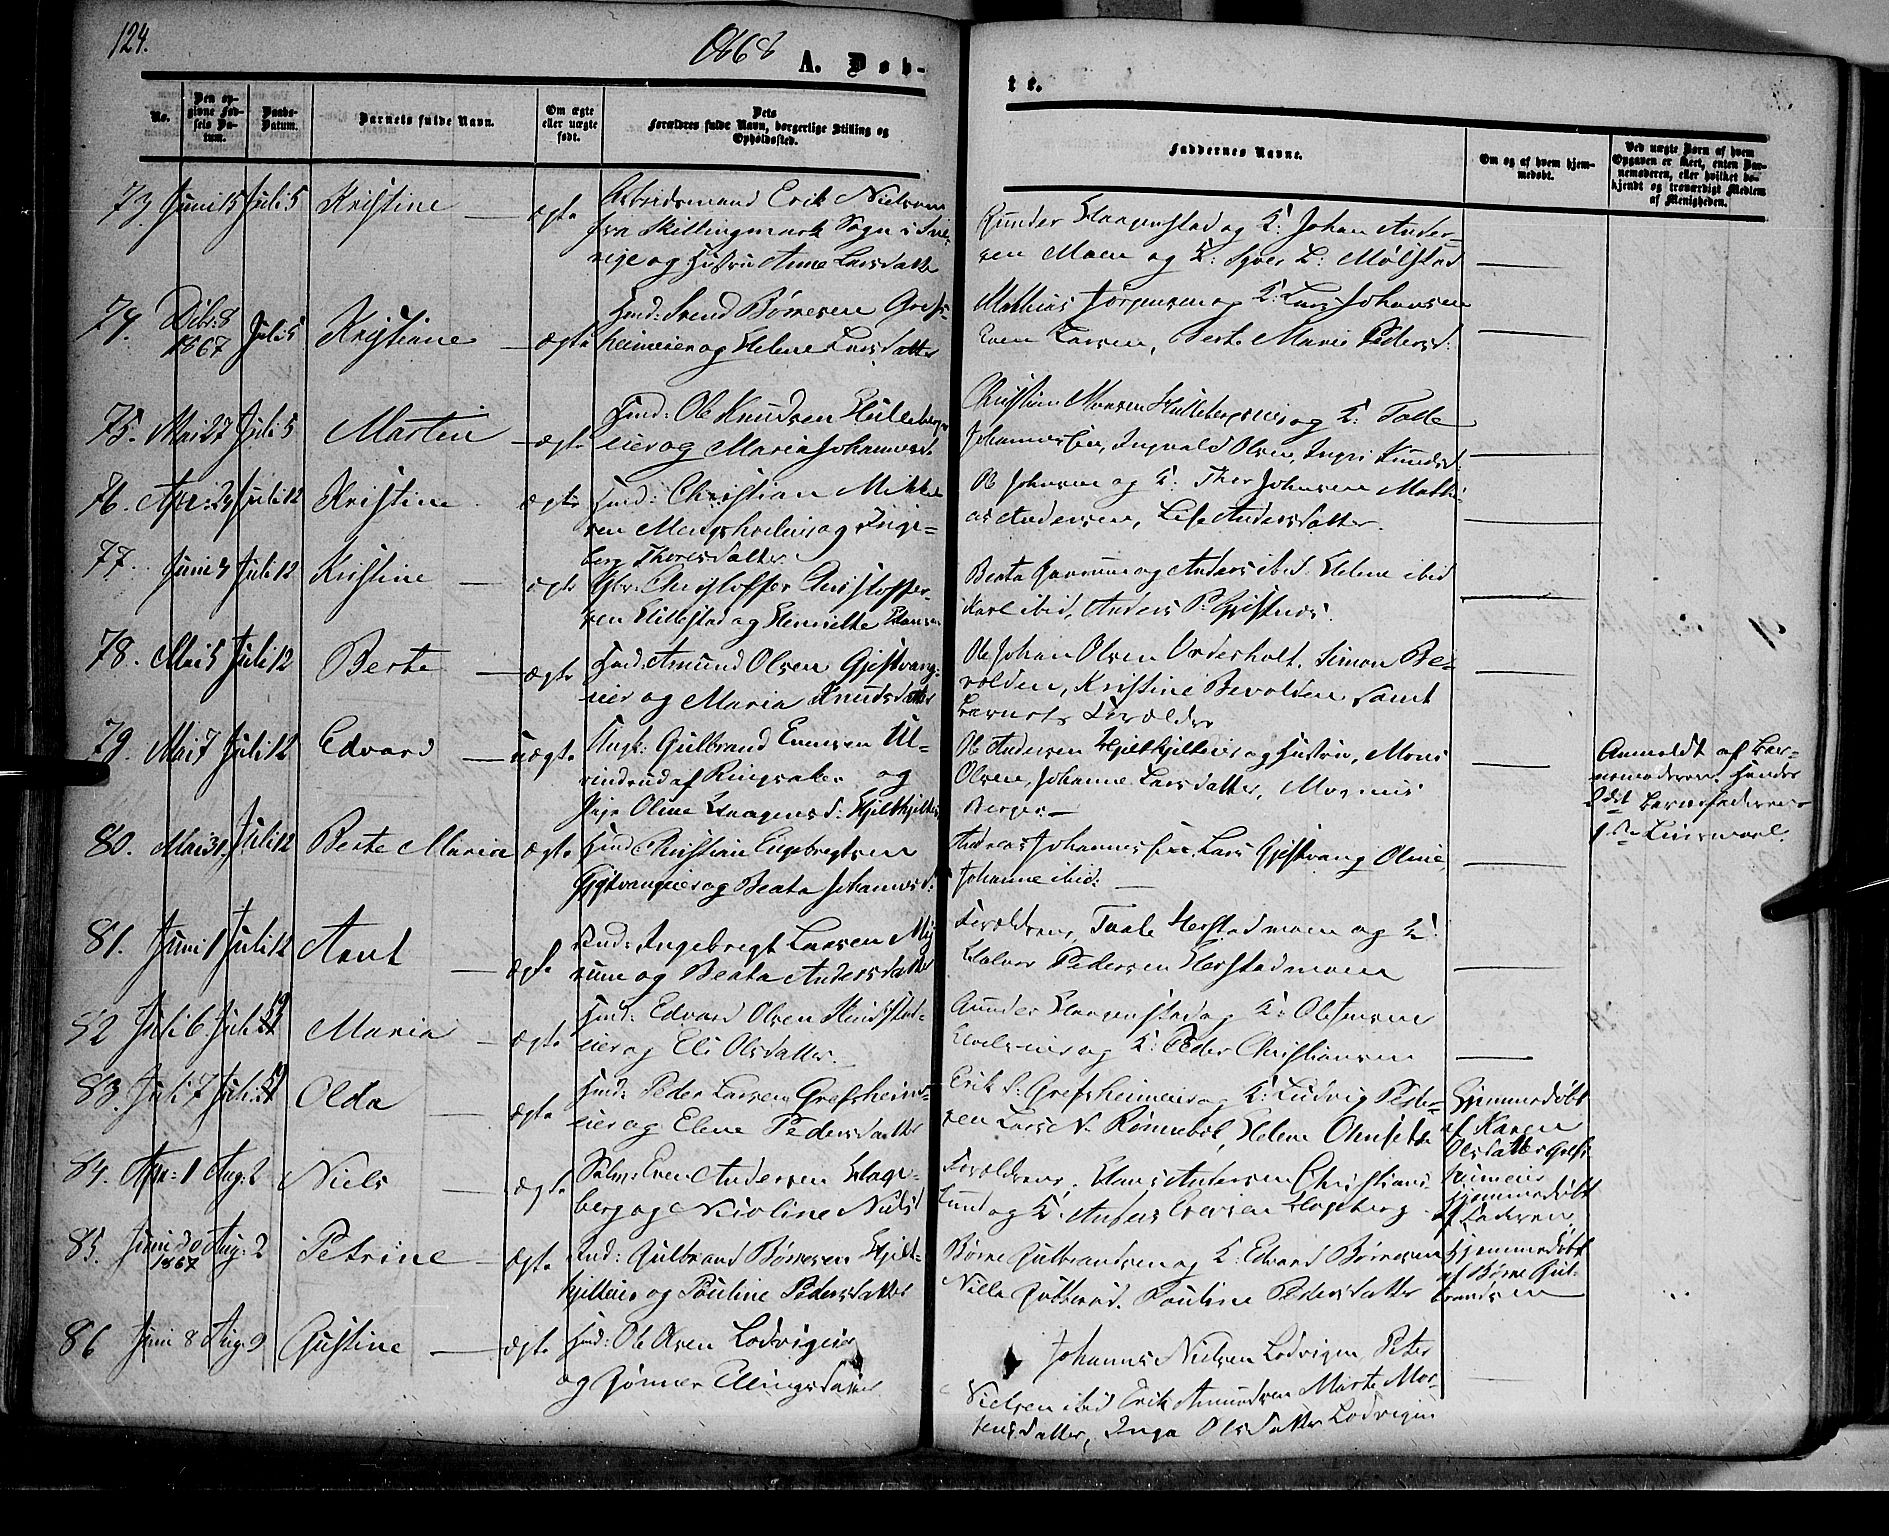 124.
1868
A. Døb-
te.
No.
Den op-
givne Fød-
sels Da-
tum.
Daabs-
Datum.
Barnets fulde Navn.
Om ægte
eller uægte
født.
Dets
Forældres fulde Navn, borgerlige Stilling og
Opholdssted.
Faddernes Navne.
Om og af hvem hjem-
medøbt.
Ved uægte Børn af hvem
Opgaven er skeet, enten Bar-
nemoderen, eller hvilket be-
kjendt og troværdigt Medlem
af Menigheden.
73. Juni 15 Juli 5 Kristine — ægte
Arbeidsmand Erik Nielsen
fra Skillingmark Sogn i Sve-
rige og Hustru Anne Larsdatter
Gunder Haagenstad og K: Johan Ander-
sen Moen og K: Syver L: Mølstad
74. Debr: 8
1867 Juli 5 Kristiane — ægte
Hmd: Svend Børresen Grefs-
heimeier og Helene Larsdatter
Mathias Jørgensen og K: Lars Johansen
Even Larsen, Berte Marie Pedersd:
75. Mai 27 Juli 5 Martin — ægte
Hmd: Ole Knudsen Hillebergs-
eier og Maria Johannesd.
Christian Monsen Hillebergseier og K: Tolle
Johannessen, Ingvald Olsen, Ingri Knudsd:
76. Apr: 24 Juli 12 Kristine ægte
Hmd: Christian Mikkel-
sen Mengshoeleier og Inge-
borg Thoresdatter
Ole Johnsen og K: Thor Johnsen Mathi-
as Andersen, Lise Andersdatter.
77. Juni 3 Juli 12 Kristine — ægte
Gbr: Christoffer Christoffer-
sen Hillestad og Henriette Hansen
Beata Farmen og Anders ibid. Helene ibid
Karl ibid, Anders P. Gjestnes.
78. Mai 5 Juli 12 Berte — ægte
Hmd: Amund Olsen Gjestvang-
eier og Maria Knudsdatter
Ole Johan Olsen Orderholt. Simon Be-
volden, Kristine Bevolden samt
Barnets Forældre
79. Mai 7 Juli 12 Edvard — uægte
Ungk: Gulbrand Evensen Ul-
rindrud af Ringsaker og
Pige Oline Haagensd: Hjelthjelteie
Ole Andersen Hjelthjelteie og Hustru, Mons
Olsen, Johanne Larsdatter, Magnus
Berger —
Anmeldt af Bar-
nemoderen. Hendes
2det Barnefaderens
1ste Leiermaal.
80. Mai 31 Juli 12 Berte Maria ægte
Hmd: Christian Engebregtsen
Gjestvangeier og Beata Johannesd:
Andreas Johannessen, Lars Gjestvang Oline,
Johanne ibid:
81. Juni 1 Juli 12 Arnt — ægte
Hmd: Ingebregt Larsen My-
rum og Beata Andersdatter
Forældrene, Taale Herstadmoen og K:
Halvor Pedersen Herstadmoen
82 Juli 6 Juli 19 Maria — ægte
Hmd: Edvard Olsen Hindstad-
eier og Eli Olsdatter.
Gunder Haagenstad og K: Ole Jensen
Hoelseier og K: Peder Christiansen
83. Juli 7 Juli 19 Olda — ægte
Hmd: Peder Larsen Grefsheims-
eier og Elene Pedersdatter
Erik P. Grefsheimeier og K: Ludvig Peder-
sen Lars N. Rønnebek, Helene Olmstad
Hjemmedøbt
af Karen
Olsdatter Grefs-
heimeie
84. Apr: 1 Aug: 2 Niels — ægte
Salm: Even Andersen Hage-
berg og Nicoline Nielsd
Forældrene, Hans Andersen Christians-
lund og K: Anders Evensen Hageberg
Hjemmedøbt
af Faderen
85. Juni 30
1867 Aug: 2 Petrine — ægte
Hmd: Gulbrand Børresen Hjelt-
hjelteie og Pauline Pedersdatter
Børre Gulbrandsen og K: Edvard Børresen
Nille Gutterud. Pauline Pedersdatter
Hjemmedøbt
af Børre Gul-
brandsen
86 Juni 8 Aug: 9 Gustine — ægte
Hmd: Ole Olsen Lodvigeie
og Gønner Ellingsdatter
Johannes Nielsen Lodvigen, Peter
Nielsen ibid Erik Amundsen Marte Mor-
tensdatter, Inga Olsdatter Lodvigen